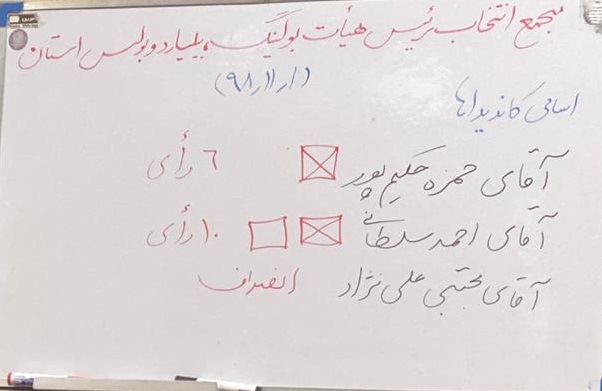 مجمع انتخاب رئیس هیأت بولینگ، بیلیارد و بولس استان
(۹۸/۱۱/۱)
اسامی کاندیداها
آقای حمزه حکیم پور ۶ رأی
آقای احمد سلطانی ۱۰ رأی
آقای مجتبی علی نژاد انصراف